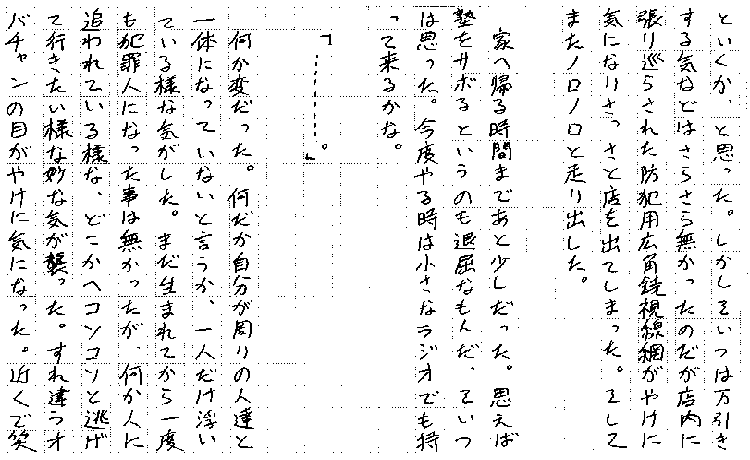 といくか、と思った。しかしそいつは万引き
する気などはさらさら無かったのだが店内に
張り巡らされた防犯用広角鋭視線網がやけに
気になりさっさと店を出てしまった。そして
またノロノロと走り出した。
家へ帰る時間まであと少しだった。思えば
塾をサボるというのも退屈なもんだ、そいつ
は思った。今度やる時は小さなラジオでも持
って来るかな。
「……」。
何か変だった。何だか自分が周りの人達と
一体になっていないと言うか、一人だけ浮い
ている様な気がした。まだ生まれてから一度
も犯罪人になった事は無かったが、何か人に
追われている様な、どこかへコソコソと逃げ
て行きたい様な妙な気が襲った。すれ違うオ
バチャンの目がやけに気になった。近くで笑